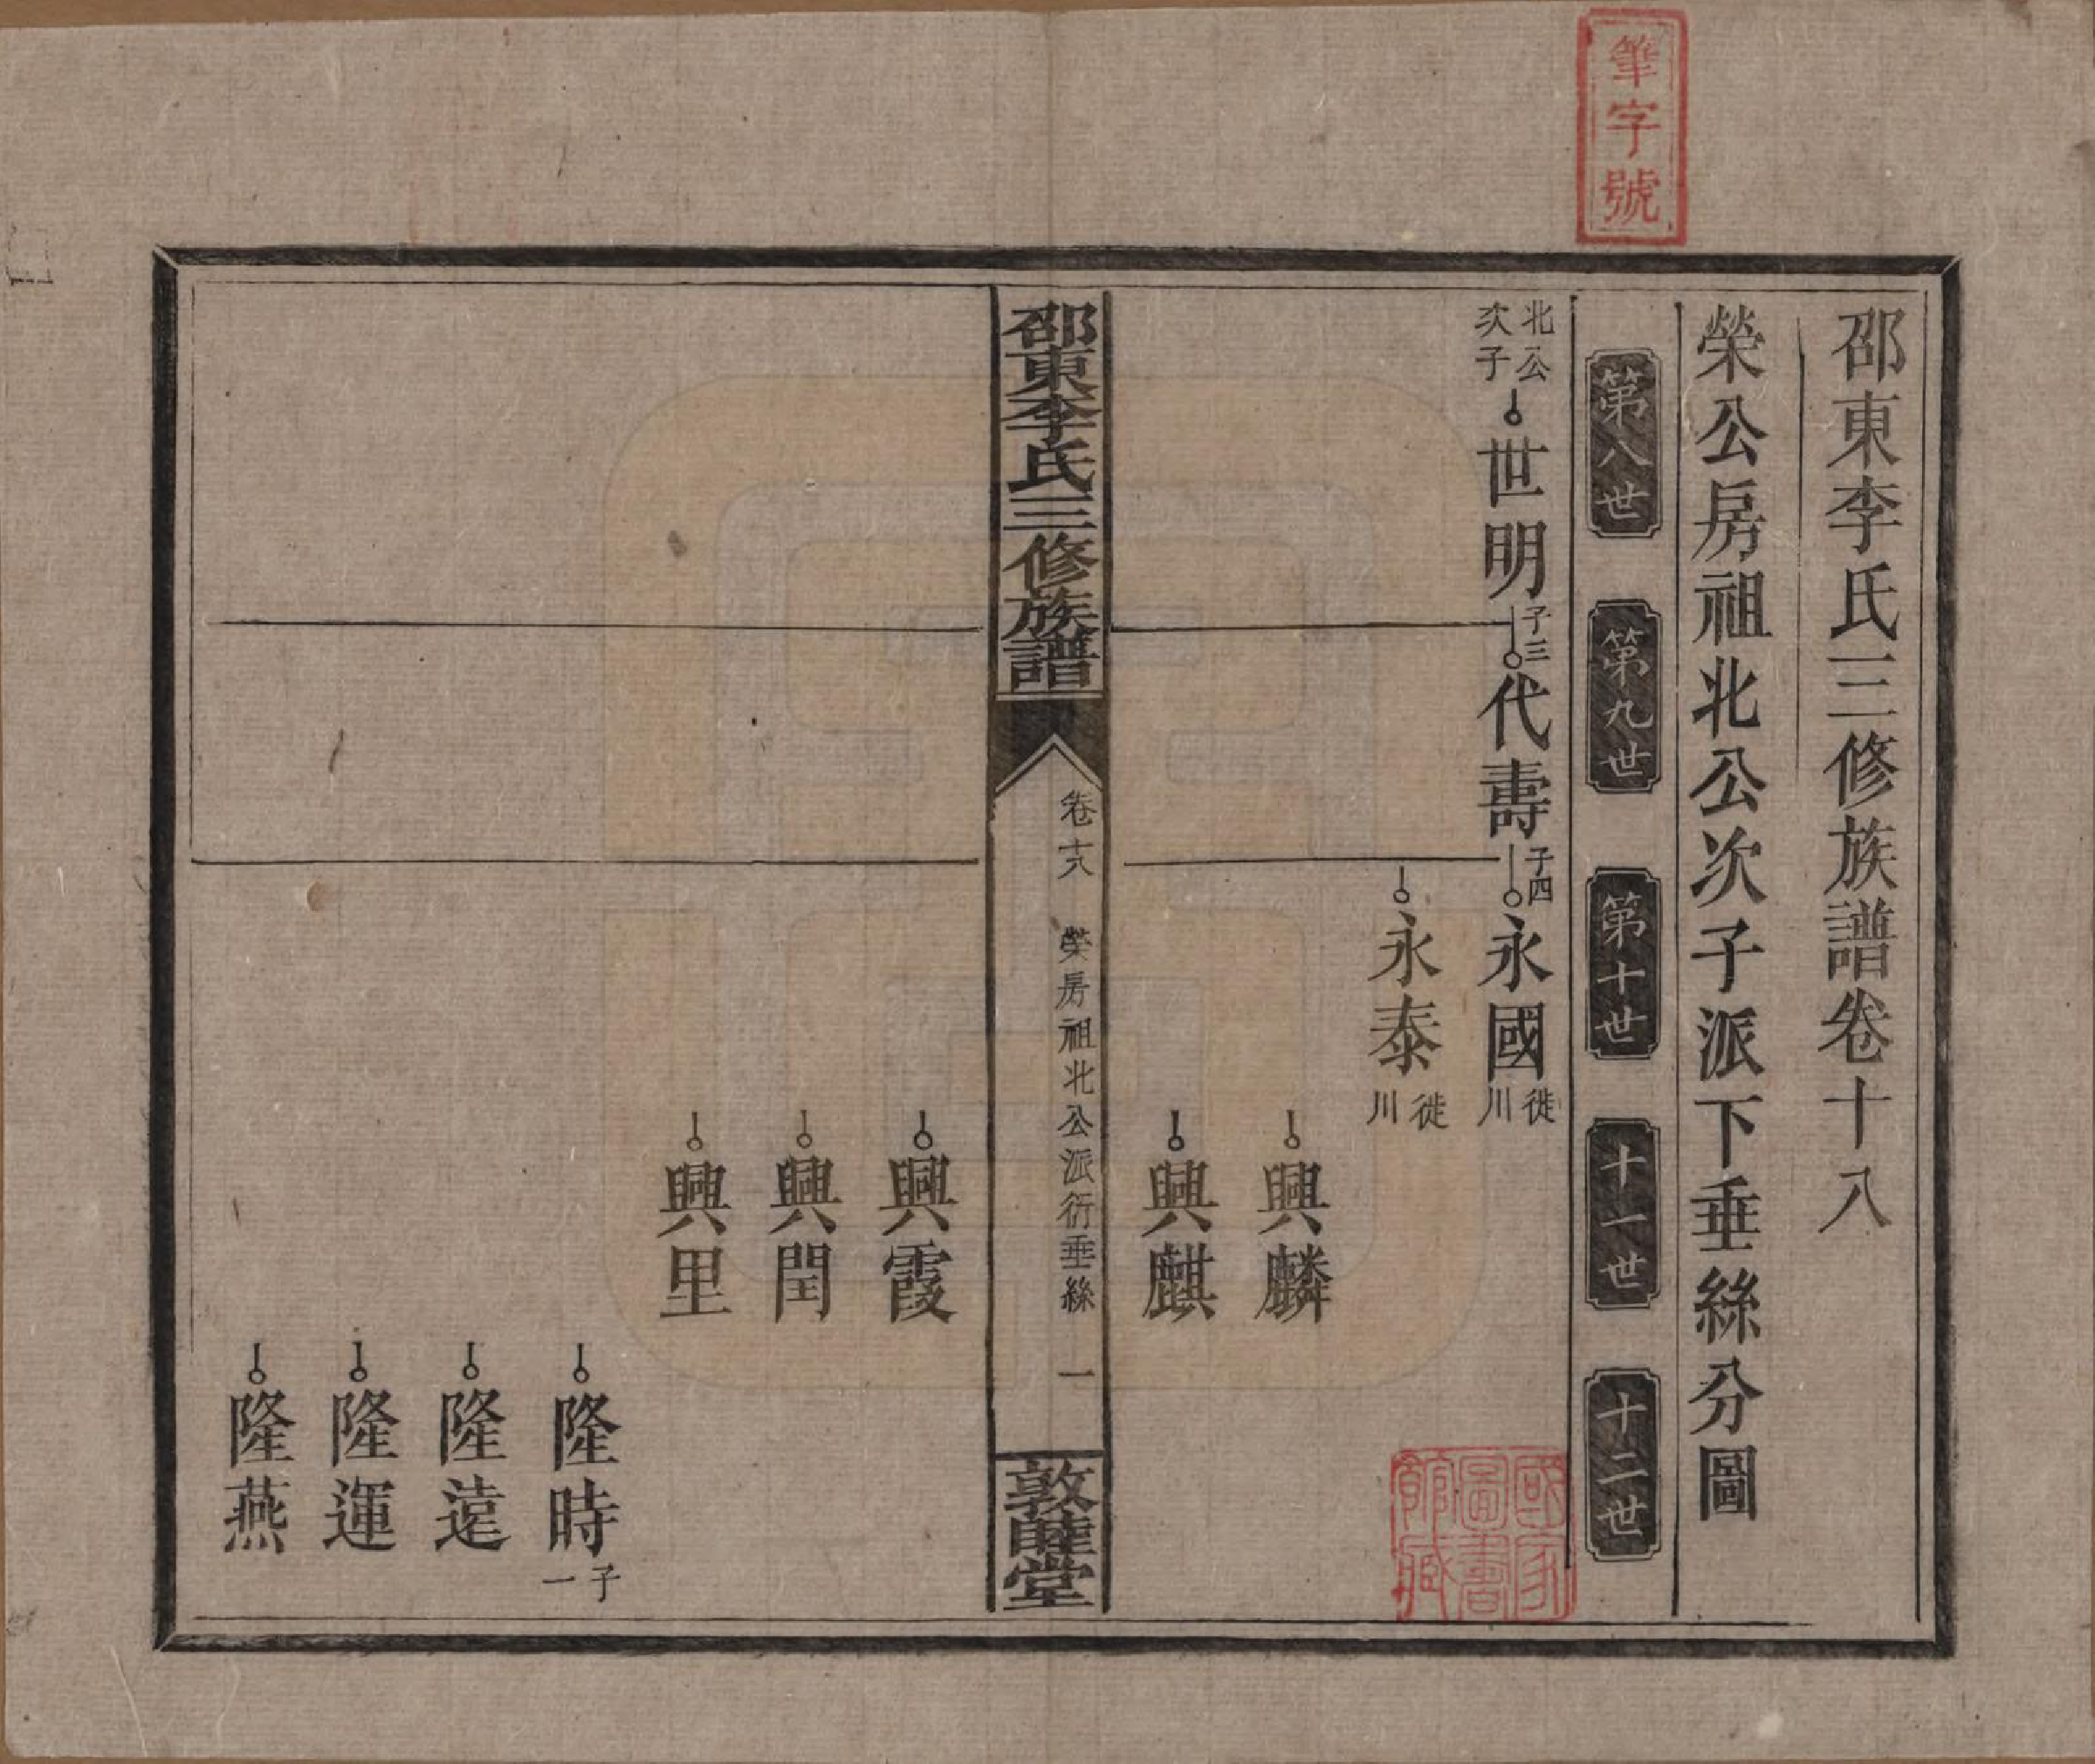 筆字號
邵東李氏三修族譜卷十八
榮公房祖北公次子派下垂絲分圖
第八世 第九世 第十世 十一世 十二世
北公次子 世明 子三 代壽 子四 永國 徙川
永泰 徙川
興麟
興麒
邵東李氏三修族譜 卷十八 榮房祖北公派衍垂絲 一 敦睦堂
興霞
興閏
興里
隆時 子一
隆遠
隆運
隆燕
國家圖書館藏